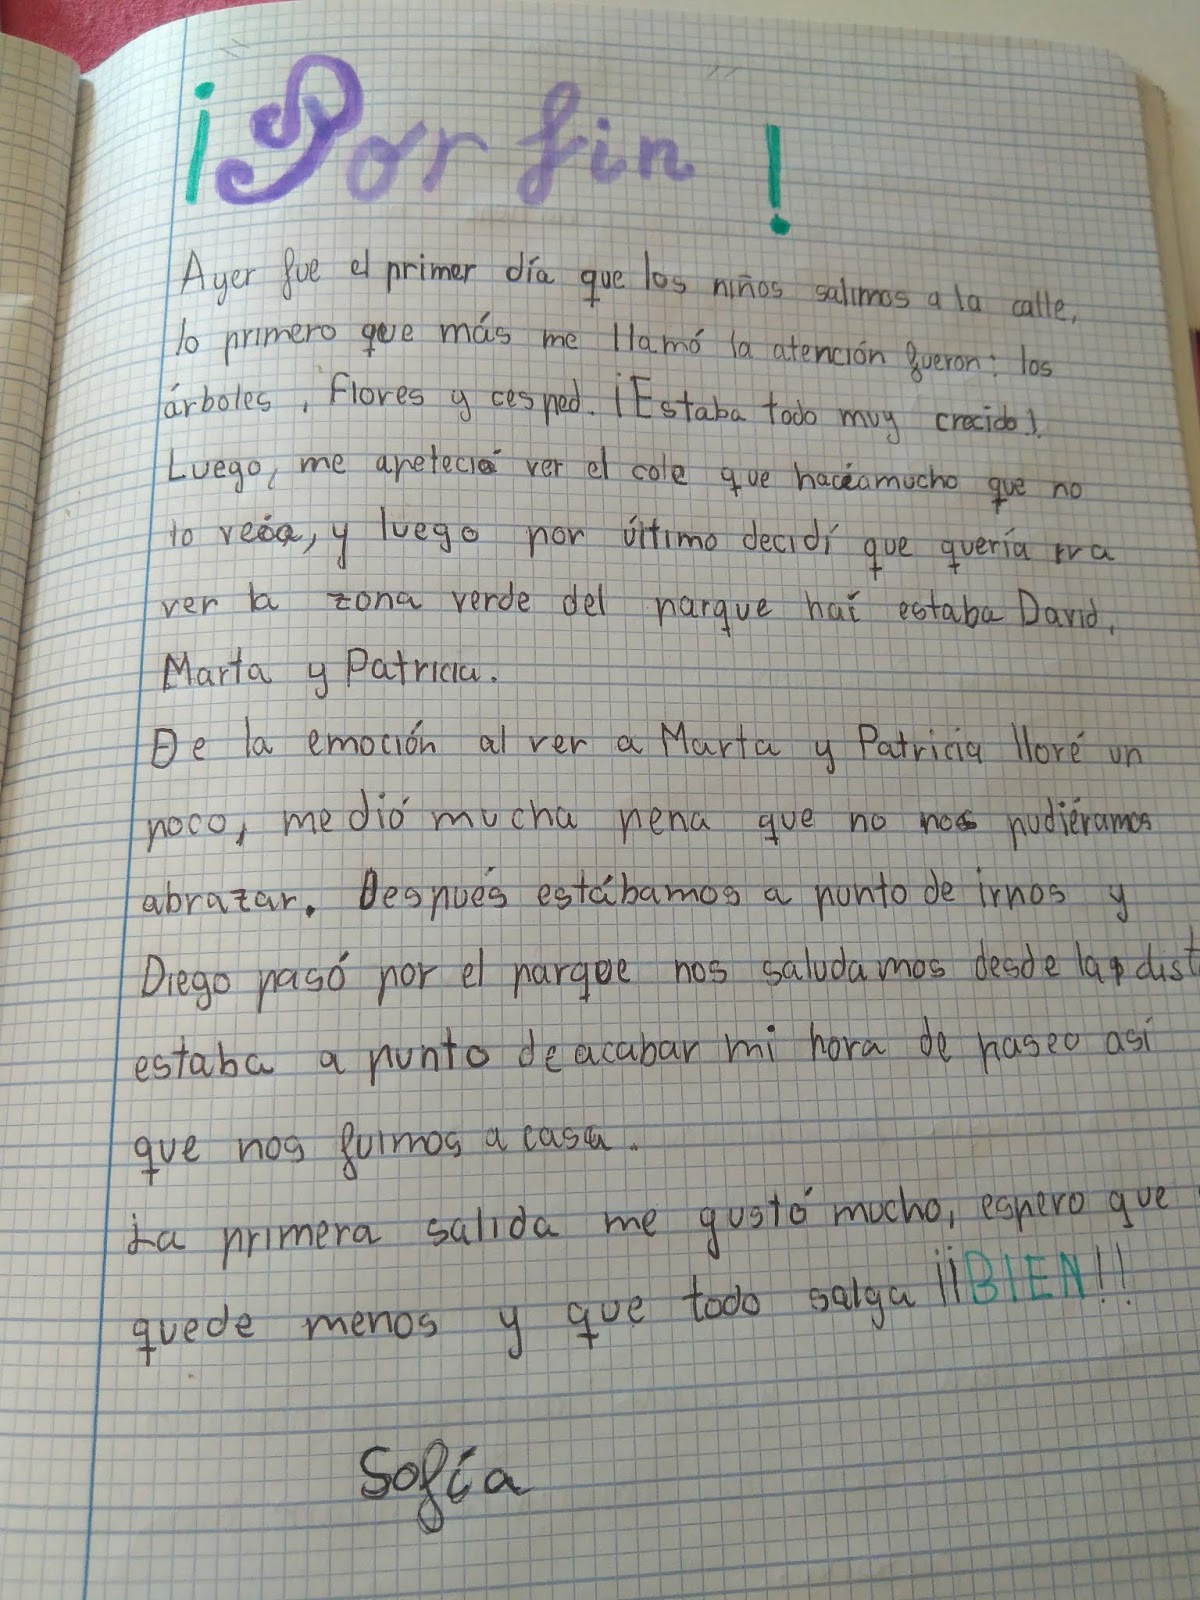 ¡Por fin!
Ayer fue el primer día que los niños salimos a la calle,
lo primero que más me llamó la atención fueron: los
árboles, flores y cesped. ¡Estaba todo muy crecido!
Luego, me apeteció ver el cole que hacíamucho que no
lo veía, y luego por último decidí que quería ir a
ver la zona verde del parque haí estaba David,
Marta y Patricia.
De la emoción al ver a Marta y Patricia lloré un
poco, me dió mucha pena que no nos pudiéramos
abrazar. Después estábamos a punto de irnos y
Diego pasó por el parque nos saludamos desde la dist
estaba a punto de acabar mi hora de paseo así
que nos fuimos a casa.
La primera salida me gustó mucho, espero que
quede menos y que todo salga ¡¡BIEN!!
Sofía